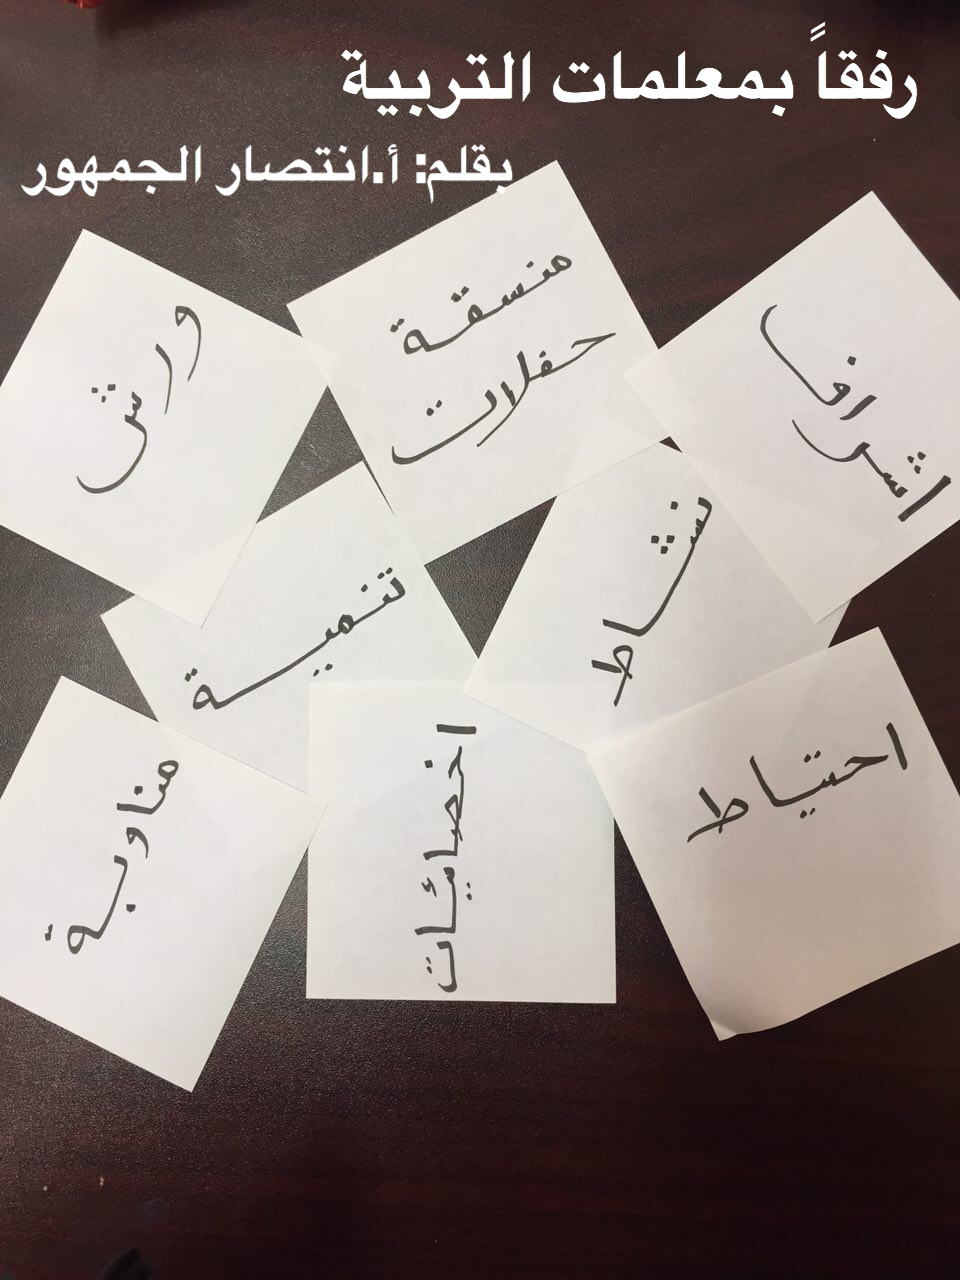 رفقاً بمعلمات التربية
بقلم: أ.انتصار الجمهور
اشرافا
منسقة
حفلات
ورش
نشاط
تنمية
احتياط
اخصائيات
مناوبة